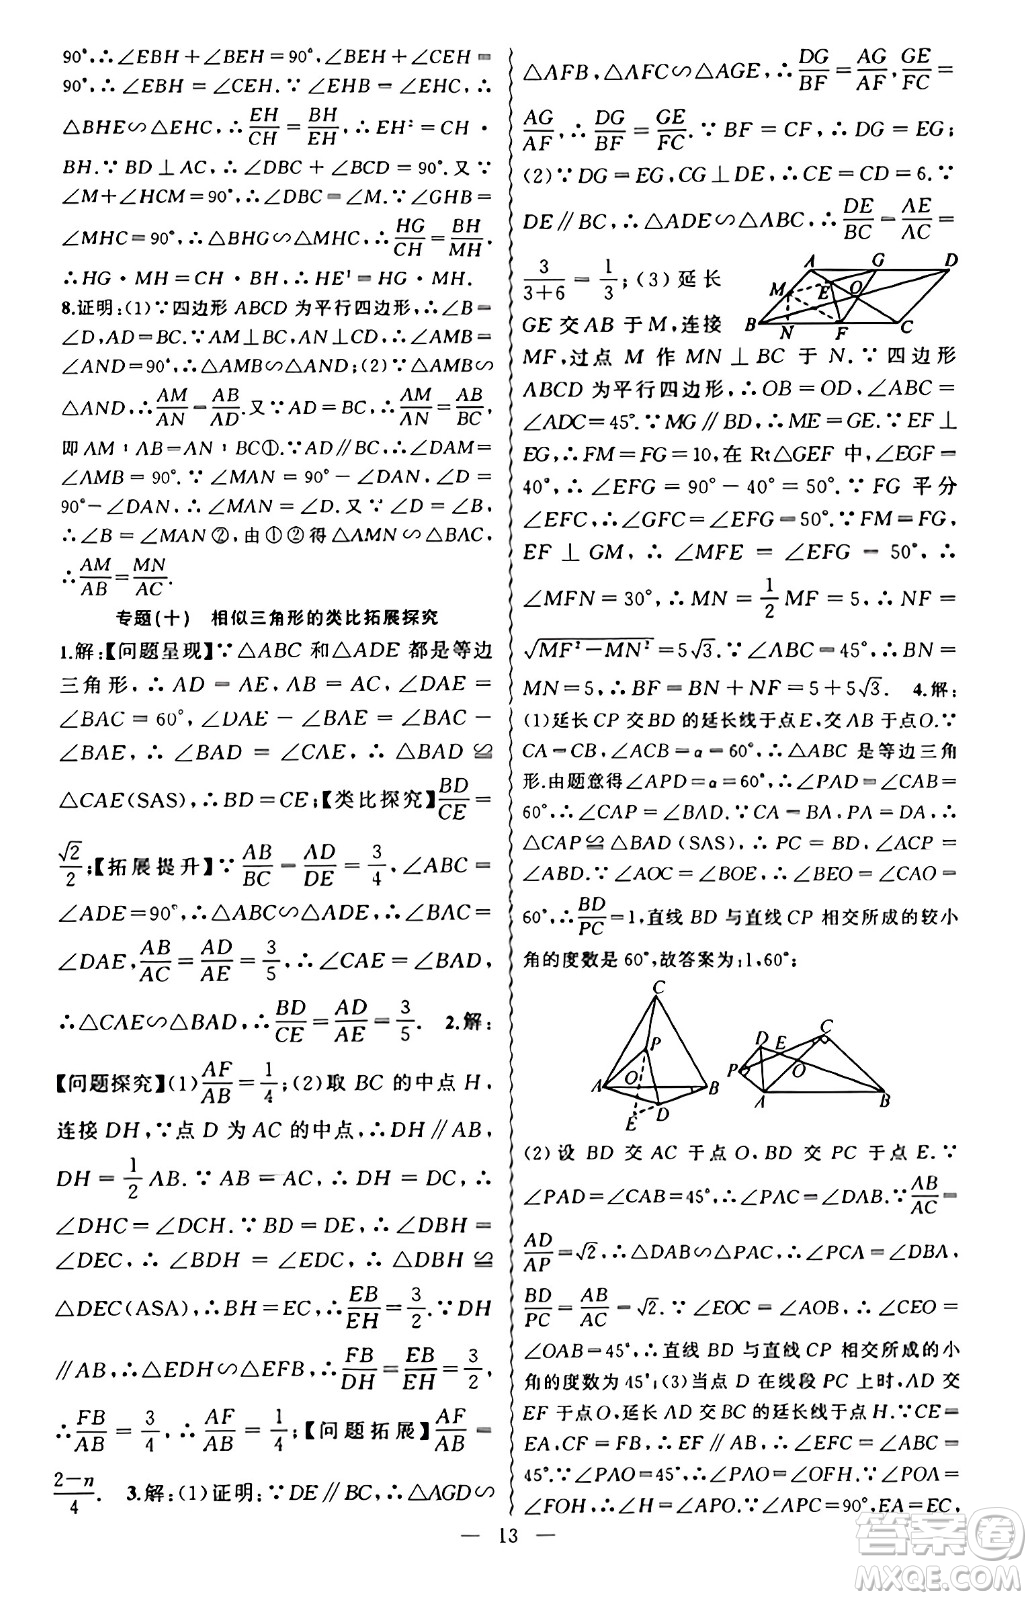 90°,∴∠EBH+∠BEH=90°,∠BEH+∠CEH=
90°,∴∠EBH=∠CEH.∵∠EHB=∠EHC,∴
△BHE∽△EHC,∴EH/CH=BH/EH,∴EH²=CH·
BH.∵BD⊥AC,∴∠DBC+∠BCD=90°.又∵
∠M+∠HCM=90°,∴∠DBC=∠M.∵∠GHB=
∠MHC=90°,∴△BHG∽△MHC,∴HG/CH=BH/MH,
∴HG·MH=CH·BH,∴HE²=HG·MH.
8.证明:(1)∵四边形ABCD为平行四边形,∴∠B=
∠D,AD=BC,AD∥BC,∴∠AMB=
∠AND=90°,∴△AMB∽△AND;(2)∵△AMB∽
△AND,∴AM/AN=AB/AD.又∵AD=BC,∴AM/AN=AB/BC,
即AM:AB=AN:BC①.∵AD∥BC,∴∠DAM=
∠AMB=90°.∵∠MAN=90°-∠DAN,∠D=
90°-∠DAN,∴∠MAN=∠D.又∵∠D=∠B,
∴∠B=∠MAN②,由①②得△AMN∽△BAC,
∴AM/AB=MN/AC.
专题(十) 相似三角形的类比拓展探究
1.解:【问题呈现】∵△ABC和△ADE都是等边
三角形,∴AD=AE,AB=AC,∠DAE=
∠BAC=60°,∴∠DAE-∠BAE=∠BAC-
∠BAE,∴∠BAD=∠CAE,∴△BAD≌
△CAE(SAS),∴BD=CE;【类比探究】BD/CE=
√2/2;【拓展提升】∵AB/BC=AD/DE=3/4,∠ABC=
∠ADE=90°,∴△ABC∽△ADE,∴∠BAC=
∠DAE,AB/AC=AD/AE=3/5,∴∠CAE=∠BAD,
∴△CAE∽△BAD,∴BD/CE=AD/AE=3/5. 2.解:
【问题探究】(1)AF/AB=1/4;(2)取BC的中点H,
连接DH,∵点D为AC的中点,∴DH∥AB,
DH=1/2AB.∵AB=AC,∴DH=DC,∴
∠DHC=∠DCH.∵BD=DE,∴∠DBH=
∠DEC,∴∠BDH=∠EDC,∴△DBH≌
△DEC(ASA),∴BH=EC,∴EB/EH=3/2.∵DH
∥AB,∴△EDH∽△EFB,∴FB/DH=EB/EH=3/2,
∴FB/AB=3/4,∴AF/AB=1/4;【问题拓展】AF/AB=
(2-n)/4. 3.解:(1)证明:∵DE∥BC,∴△AGD∽
△AFB,△AFC∽△AGE,∴DG/BF=AG/AF,GE/FC=
AG/AF,∴DG/BF=GE/FC.∵BF=CF,∴DG=EG;
(2)∵DG=EG,CG⊥DE,∴CE=CD=6.∵
DE∥BC,∴△ADE∽△ABC,∴DE/BC=AE/AC=
3/(3+6)=1/3;(3)延长
GE交AB于M,连接
A G D M E O B N F C
MF,过点M作MN⊥BC于N.∵四边形
ABCD为平行四边形,∴OB=OD,∠ABC=
∠ADC=45°.∵MG∥BD,∴ME=GE.∵EF⊥
EG,∴FM=FG=10,在Rt△GEF中,∠EGF=
40°,∴∠EFG=90°-40°=50°.∵FG平分
∠EFC,∴∠GFC=∠EFG=50°.∵FM=FG,
EF⊥GM,∴∠MFE=∠EFG=50°,∴
∠MFN=30°,∴MN=1/2MF=5,∴NF=
√(MF²-MN²)=5√3.∵∠ABC=45°,∴BN=
MN=5,∴BF=BN+NF=5+5√3. 4.解:
(1)延长CP交BD的延长线于点E,交AB于点O.∵
CA=CB,∠ACB=α=60°,∴△ABC是等边三角
形.由题意得∠APD=α=60°,∴∠PAD=∠CAB=
60°,∴∠CAP=∠BAD.∵CA=BA,PA=DA,∴
△CAP≌△BAD(SAS),∴PC=BD,∠ACP=
∠ABD.∵∠AOC=∠BOE,∴∠BEO=∠CAO=
60°,∴BD/PC=1,直线BD与直线CP相交所成的较小
角的度数是60°,故答案为:1,60°;
C P A O B E D
D E C P O A B
(2)设BD交AC于点O,BD交PC于点E.∵
∠PAD=∠CAB=45°,∴∠PAC=∠DAB.∵AB/AC=
AD/AP=√2,∴△DAB∽△PAC,∴∠PCA=∠DBA,
BD/PC=AB/AC=√2.∵∠EOC=∠AOB,∴∠CEO=
∠OAB=45°,∴直线BD与直线CP相交所成的较小
角的度数为45°;(3)当点D在线段PC上时,AD交
EF于点O,延长AD交BC的延长线于点H.∵CE=
EA,CF=FB,∴EF∥AB,∴∠EFC=∠ABC=
45°.∵∠PAO=45°,∴∠PAO=∠OFH.∵∠POA=
∠FOH,∴∠H=∠APO.∵∠APC=90°,EA=EC,
— 13 —
答案卷
MXQE.COM